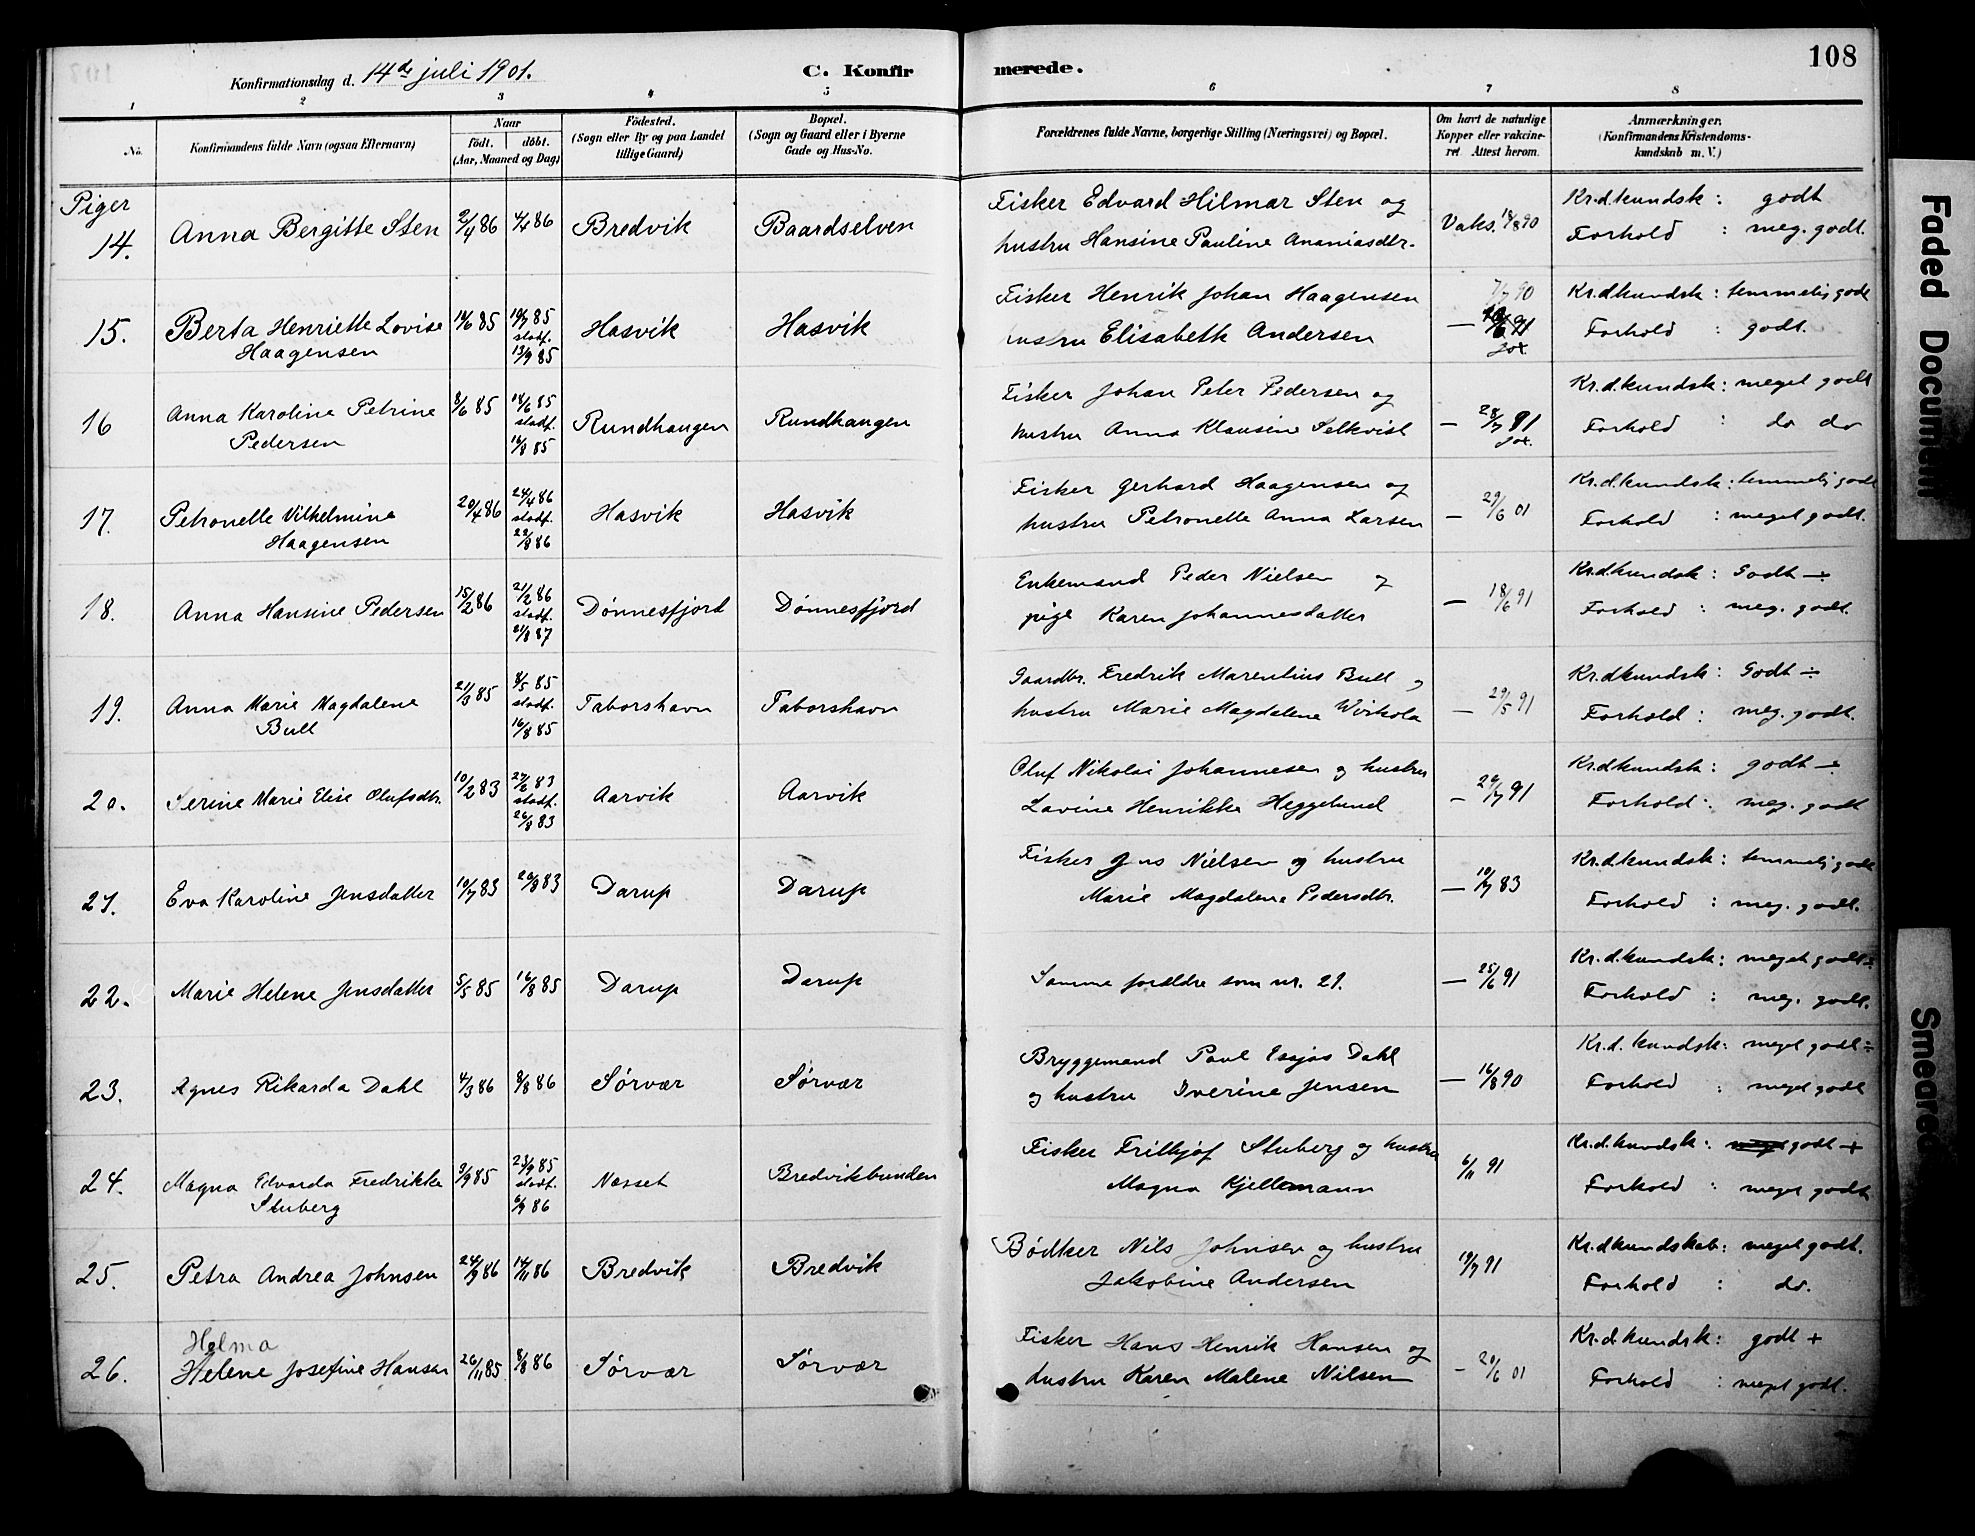 108
Konfirmationsdag d. 14de juli 1901.
C. Konfirmerede.
1 2 3 4 5 6 7 8
No.
Konfirmandens fulde Navn (ogsaa Efternavn)
Naar
födt. döbt.
(Aar, Maaned og Dag)
Födested.
(Sogn eller By og paa Landet
tillige Gaard)
Bopæl.
(Sogn og Gaard eller i Byerne
Gade og Hus-No.
Forældrenes fulde Navne, borgerlige Stilling (Næringsvei) og Bopæl.
Om havt de naturlige
Kopper eller vaccine-
ret Attest herom.
Anmærkninger.
(Konfirmandens Kristendoms-
kundskab m. V.)
Piger
14. Anna Bergitte Sten 2/4 86 4/4 86 Bredvik Baardselven
Fisker Edvard Hilmar Sten og
hustru Hansine Pauline Ananiasdtr.
Vaks. 18/8 90
Kr.d.kundsk: godt
Forhold : meg. godt.
15. Berta Henriette Lovise
Haagensen
14/6 85 19/7 85
stadf.
13/9 85
Hasvik Hasvik
Fisker Henrik Johan Haagensen
hustru Elisabeth Andersen
7/7 90
91
Kr.dkundsk: temmelig godt
Forhold : godt.
16 Anna Karoline Petrine
Pedersen
8/6 85 14/6 85
stadf.
16/8 85
Rundhaugen Rundhaugen
Fisker Johan Peter Pedersen og
hustru Anna Klausine Selkvist
— 28/7 91
Kr.d.kundsk: meget godt
Forhold : do do
17. Petronelle Vilhelmine
Haagensen
20/4 86 24/4 86
stadf.
22/8 86
Hasvik Hasvik
Fisker Gerhard Haagensen og
hustru Petronelle Anna Larsen
— 29/6 01
Kr.d.kundsk: temmelig godt
Forhold : meget godt.
18. Anna Hansine Pedersen 15/2 86 21/2 86
stadf.
21/8 87
Dönnesfjord Dönnesfjord
Enkemand Peder Nielsen og
pige Karen Johannesdatter
— 18/6 91
Kr.d.kundsk: Godt ÷
Forhold : meg. godt.
19. Anna Marie Magdalene
Bull
21/3 85 8/5 85
stadf.
16/8 85
Taborshavn Taborshavn
Gaardbr. Fredrik Marentius Bull og
hustru Marie Magdalene Wirkola
— 29/5 91
Kr.dkundsk: Godt ÷
Forhold : meg. godt.
20. Serine Marie Elise Olufsdtr. 10/2 83 27/6 83
stadf.
26/8 83
Aarvik Aarvik
Oluf Nikolai Johannesen og hustru
Lavine Henrikke Heggelund
— 29/7 91
Kr.dkundsk: godt ÷
Forhold : meg. godt
21. Eva Karoline Jensdatter 10/7 83 20/8 83 Darup Darup
Fisker Jens Nielsen og hustru
Marie Magdalene Pedersdtr.
— 19/7 83
Kr.dkundsk: temmelig godt
Forhold : meg. godt.
22. Marie Helene Jensdatter 5/5 85 16/8 85 Darup Darup
Samme forældre som nr. 21.
— 25/6 91
Kr.d.kundsk: meget godt ÷
Forhold : meg. godt.
23. Agnes Rikarda Dahl 4/3 86 8/8 86 Sørvær Sørvær
Bryggemand Paul Esajas Dahl
og hustru Iverine Jensen
— 16/8 90
Kr.d. kundsk: meget godt ÷
Forhold : meget godt
24. Magna Edvarda Fredrikke
Stuberg
3/9 85 23/9 85
stadf.
6/9 86
Næsset Bredvikbunden
Fisker Frithjof Stuberg og hustru
Magna Kjellemann
6/11 91
Kr.d.kundsk: godt +
Forhold : meget godt
25. Petra Andrea Johnsen 24/9 86 14/11 86 Bredvik Bredvik
Bödker Nils Johnsen og hustru
Jakobine Andersen
19/7 91
Kr.dkundskab: meget godt.
Forhold : do.
Helma
26. Helene Josefine Hansen 26/11 85 8/8 86 Sørvær Sørvær
Fisker Hans Henrik Hansen og
hustru Karen Malene Nilsen
— 20/6 01
Kr.d.kundsk: godt +
Forhold : meget godt.
Faded Document
Smeared